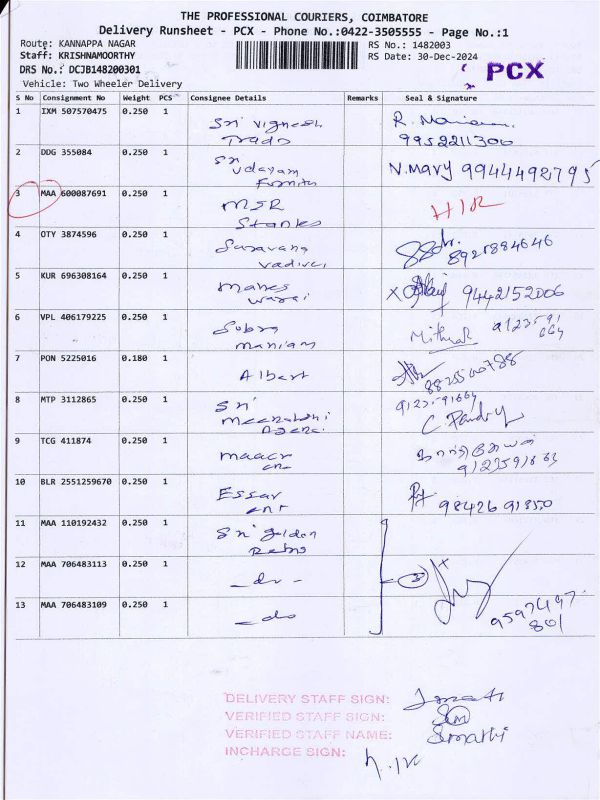 THE PROFESSIONAL COURIERS, COIMBATORE
Delivery Runsheet - PCX - Phone No.:0422-3505555 - Page No.:1
Route: KANNAPPA NAGAR
RS No.: 1482003
Staff: KRISHNAMOORTHY
RS Date: 30-Dec-2024
PCX
DRS No.: DCJB148200301
Vehicle: Two Wheeler Delivery
S No Consignment No Weight PCS Consignee Details Remarks Seal & Signature
1 IXM 507570475 0.250 1 Sri Vignesh
9952211300
2 DDG 355084 0.250 1 Sri Udayam
N.Mary 9944492795
3 MAA 600087691 0.250 1 MSR
4 OTY 3874596 0.250 1 Saravana Vadivel
8921884646
5 KUR 696308164 0.250 1
9442152006
6 VPL 406179225 0.250 1 Subra maniam
7 PON 5225016 0.180 1 Albert
8 MTP 3112865 0.250 1 Sri
9 TCG 411874 0.250 1
10 BLR 2551259670 0.250 1 Essar ent
11 MAA 110192432 0.250 1 Sri golden
12 MAA 706483113 0.250 1 - do -
13 MAA 706483109 0.250 1 - do
DELIVERY STAFF SIGN:
VERIFIED STAFF SIGN:
VERIFIED STAFF NAME:
INCHARGE SIGN: